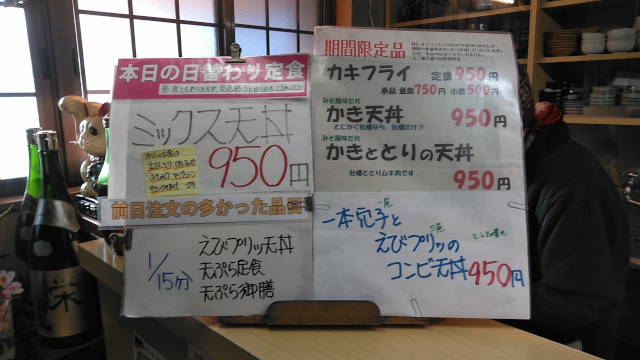 本日の日替わり定食
ミックス天丼
950円
前日注文の多かった品目
1/15分
えびプリッ天丼
天ぷら定食
天ぷら御膳
期間限定品
カキフライ 定食950円
単品 並皿750円 小皿500円
みそ風味だれ
かき天丼 950円
とにかく牡蠣なら、牡蠣だけ!!
みそ風味だれ
かきととりの天丼
牡蠣ととりムネ肉です
950円
一本穴子と
えびプリッの
コンビ天丼950円
栄